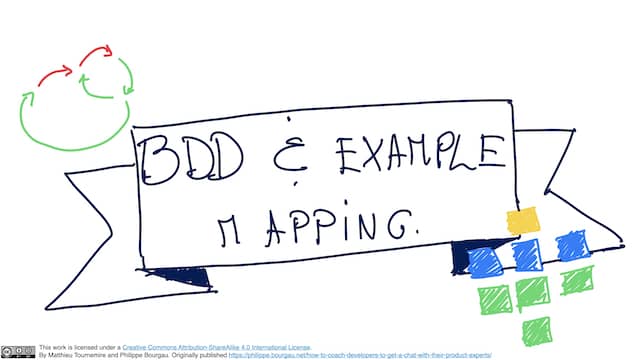 BDD & EXAMPLE
MAPPING.
This work is licensed under a Creative Commons Attribution-ShareAlike 4.0 International License.
By Matthieu Tournemire and Philippe Bourgau. Originally published https://philippe.bourgau.net/how-to-coach-developers-to-get-a-chat-with-their-product-experts/